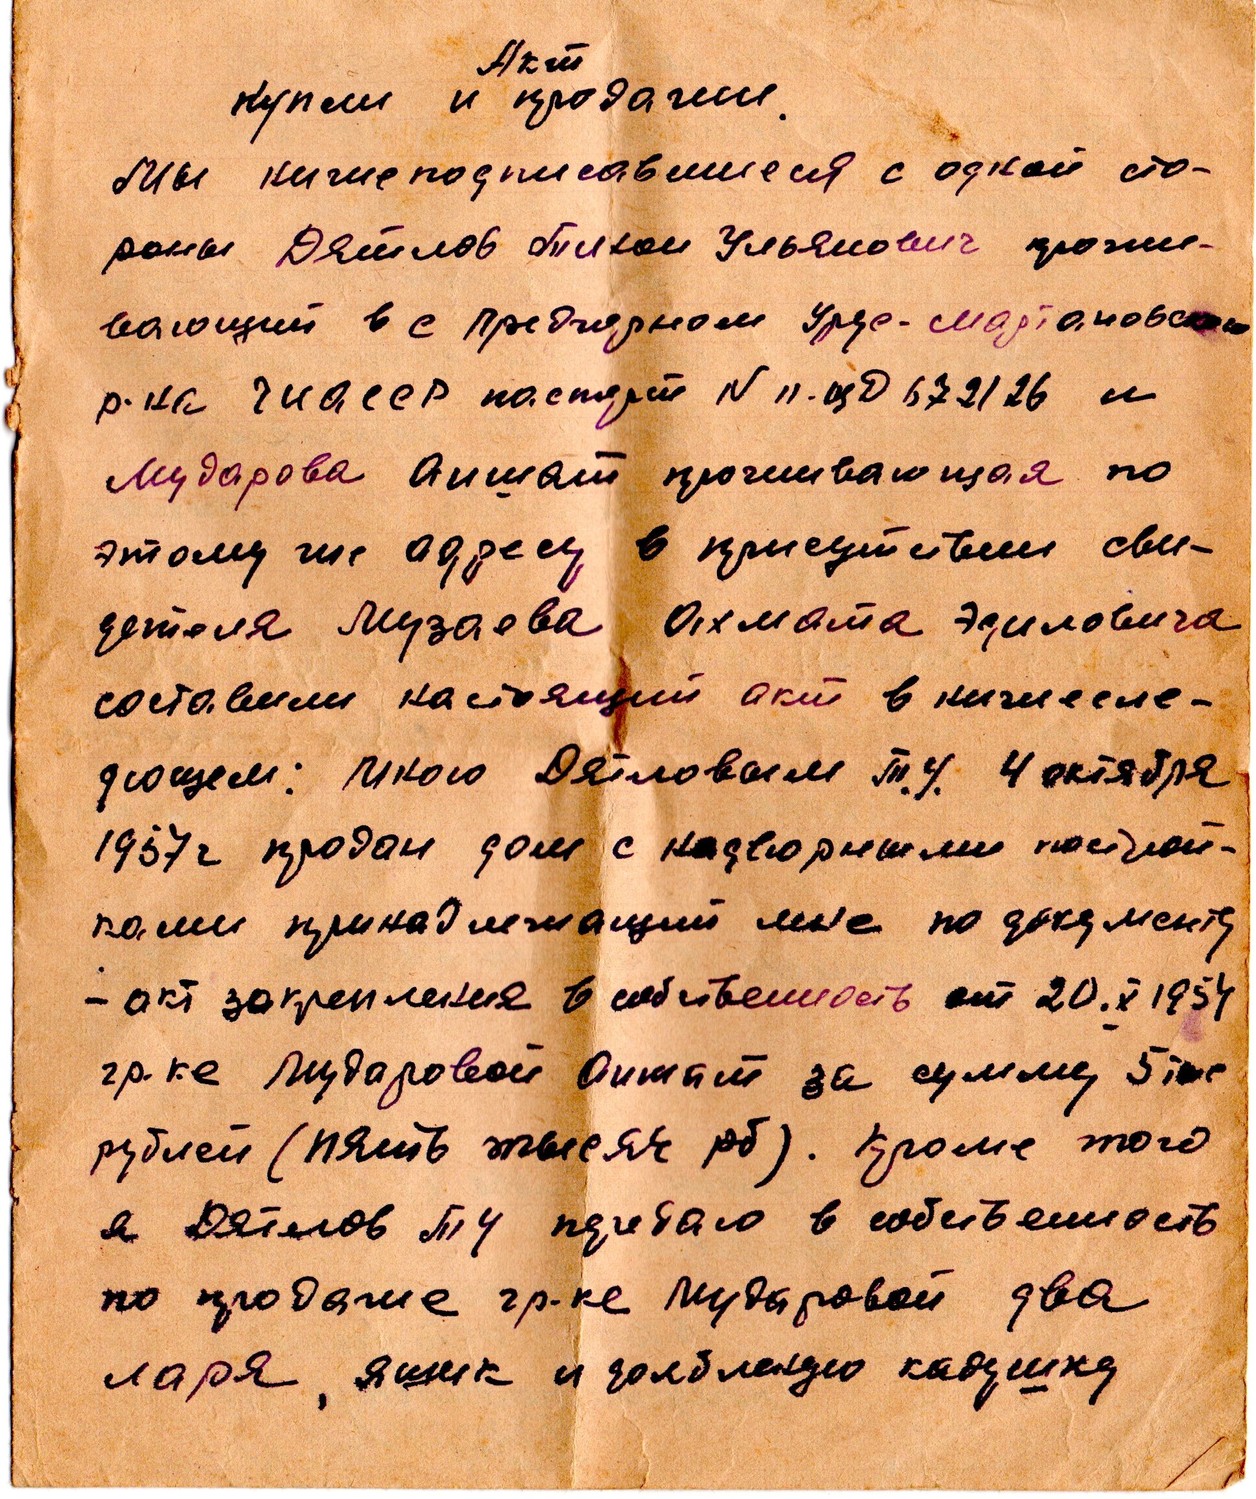 Акт
купли и продажи.
Мы нижеподписавшиеся с одной сто-
роны Дятлов Тихон Ульянович прожи-
вающий в с Предгорном Урус-Мартановского
р-на ЧИАССР паспорт N II-ЦД 672126 и
Мударова Аишат проживающая по
этому же адресу в присутствии сви-
детеля Музаева Ахмата Эдиловича
составили настоящий акт в нижесле-
дующем: Мною Дятловым Т.У. 4 октября
1957г продан дом с надворными построй-
ками принадлежащий мне по документу
- акт закрепления в собственность от 20.X 1954
гр-ке Мударовой Аишат за сумму 5 тыс
рублей (пять тысяч рб). Кроме того
я Дятлов ТУ передаю в собственность
по продаже гр-ке Мударовой два
ларя, ящик и долбленую кадушку